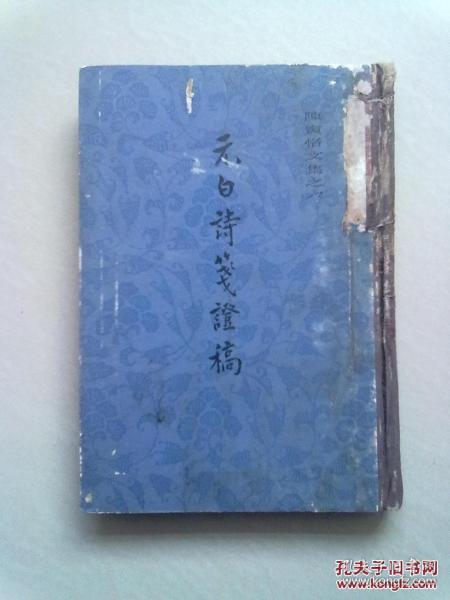 陳寅恪文集之六
元白詩箋證稿
孔夫子旧书网
www.kongfz.com